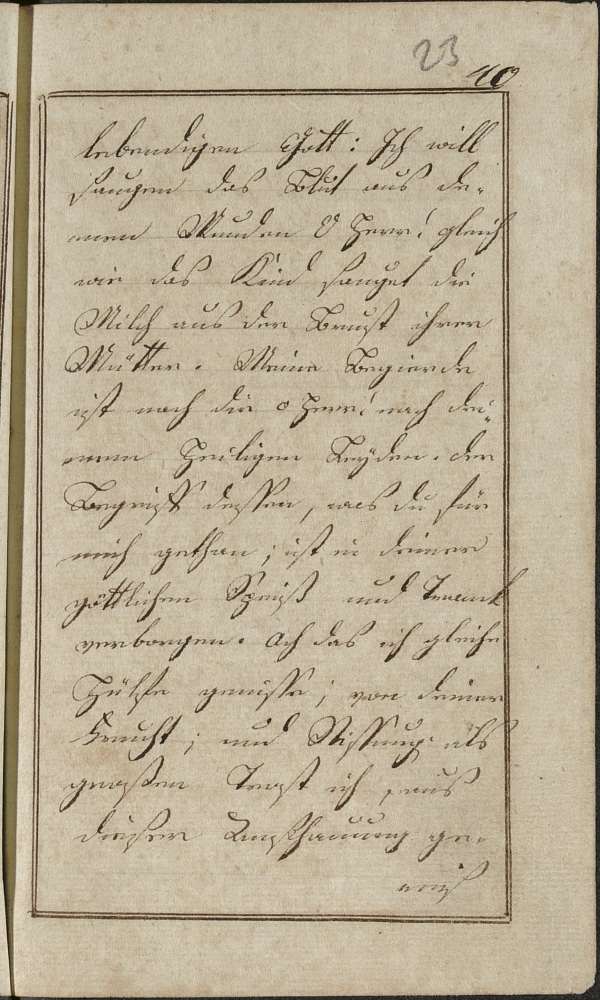 23
40
lebendigen Gott: Ich will
saugen das Blut aus de-
nnen Wunden O Herr! gleich
wie das Kind sauget die
Milch aus der Brust ihrer
Mütter. Meine Begierde
ist nach dir o Herr! nach dei-
nem Heiligen Leyden. der
Begriff dessen, was du für
mich gethan; ist in deiner
göttlichen Speiß und Tranck
verborgen. Ach das ich gleiche
Hülfe genisse; von deiner
Frucht; und als
großen Trost ich aus
dieser ge-
niß